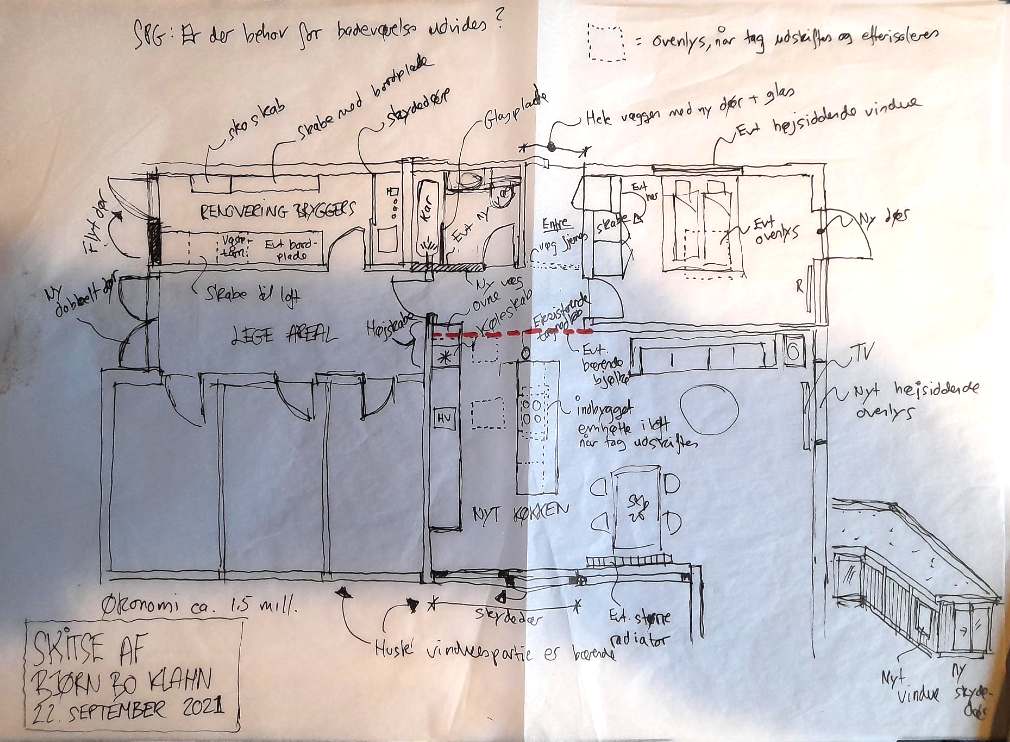 SPG: Er der behov for badeværelse udvides?
= ovenlys, når tag udskiftes og efterisoleres
skoskab
skabe med bordplade
skydedøre
Glasplade
Hele væggen med ny dør + glas
Evt højsiddende vindue
Flyt dør
RENOVERING BRYGGERS
Kar
Evt
Ny
Entre
væg fjernes
skabe
Evt
Evt
ovenlys
Ny dør
Evt bord-
plade
Skabe til loft
Ny
dobbelt dør
LEGE AREAL
Højskabe
Ny
ovne væg
Køleskab
Eksisterende
R
Evt
bærende
bjælke
TV
Nyt højsiddende
ovenlys
HV
indbygget
emhætte i loft
når tag udskiftes
NYT KØKKEN
Økonomi ca. 1.5 mill.
skydedør
Evt. større
radiator
Husk! vinduespartie er bærende
Nyt
vindue
Ny
skyde-
dør
SKITSE AF
BJØRN BO KLAHN
22. SEPTEMBER 2021